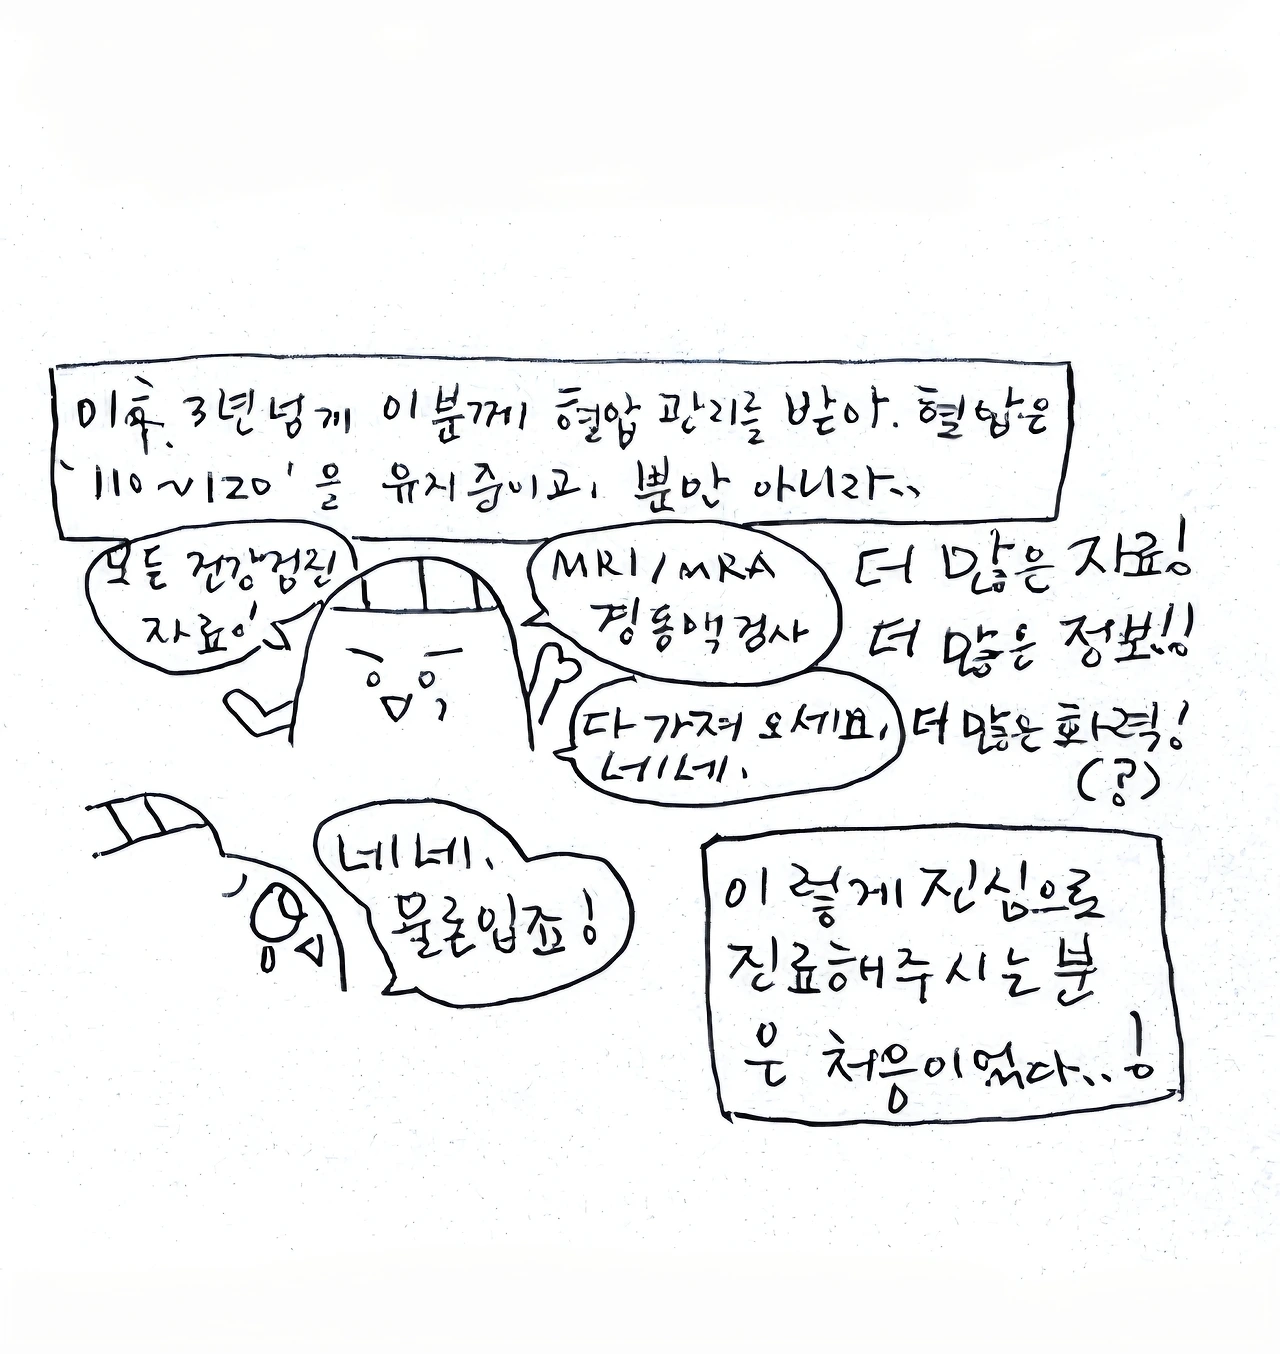 이후, 3년 넘게 이분께 혈압 관리를 받아. 혈압은
'110~120'을 유지중이고, 뿐만 아니라..
모든 건강검진
자료!
MRI/MRA
경동맥검사
다 가져 오세요,
네네.
더 많은 자료!
더 많은 정보!!
더 많은 화력!
(?)
네네.
물론입죠!
이렇게 진심으로
진료해주시는 분
은 처음이었다..!